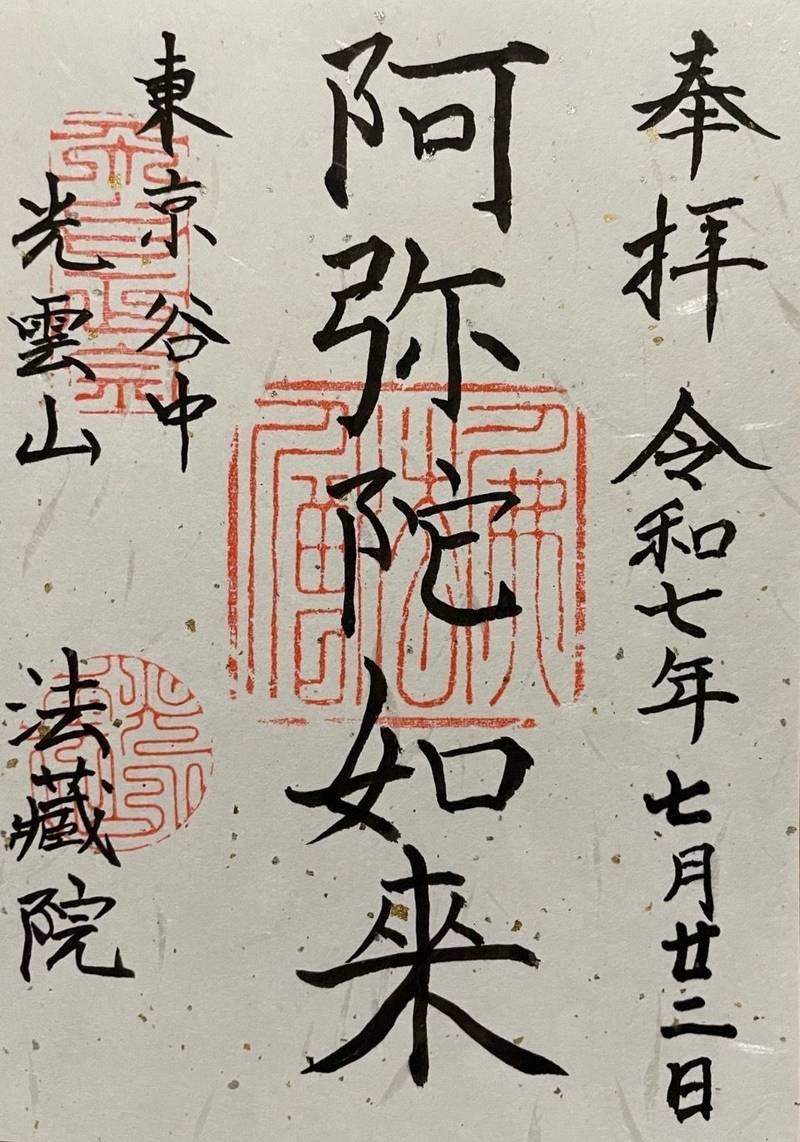 奉拝 令和七年 七月廿二日
阿弥陀如來
東京 谷中
光雲山 法藏院
佛法僧寶